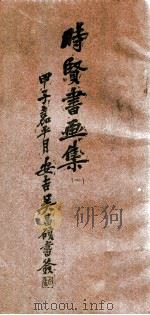 時賢書画集
(一)
甲子嘉平月安吉吴昌碩書簽
mtoou.info